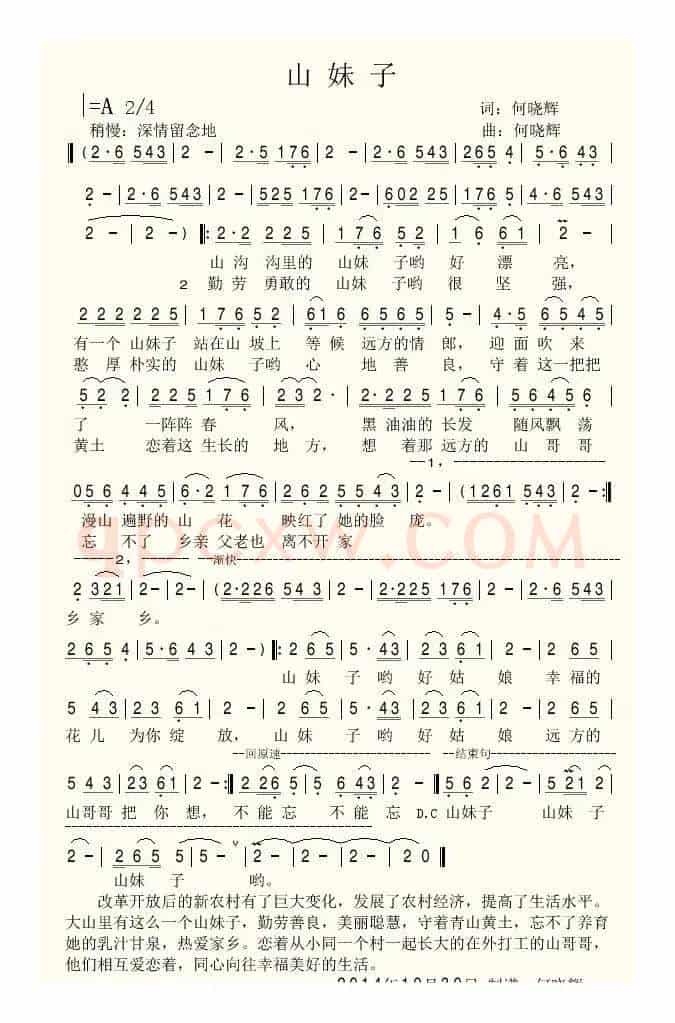 山妹子
1=A 2/4
词：何晓辉
稍慢：深情留念地
曲：何晓辉
‖(2·6 543|2 -|2·5 176|2 -|2·26 543|265 4|5·6 43|
2 -|2·6 543|2 -|525 176|2 -|602 25|176 5|4·6 543|
2 -|2 -)‖:2·2 225|176 52|661 1|6 61|2 -|
山沟 沟里的 山妹 子哟 好 漂 亮，
2 勤劳 勇敢的 山妹 子哟 很 坚 强，
222 225|176 52|616 6565|5 -|4·5 6545|
有一个 山妹子 站在山 坡上 等候 远方的情 郎，迎面吹来
憨厚 朴实的 山妹 子哟 心 地善 良，守着这一把把
52 2|225 176|2 -|232·|225 176|56456|
了 一阵阵 春 风，黑 油油的 长发 随风飘 荡
黄土 恋着这 生长的 地 方，想 着那 远方的 山 哥哥
1，
056 445|6·2 176|262 5543|2 -|(1261 543|2 -:‖
漫山 遍野的 山 花 映红了 她的脸 庞。
忘 不了 乡亲 父老也 离不开 家
2， 渐快
2 321|2 -|2 -|(2·226 543|2 -|2·225 176|2 -|2·26 543|
乡 家 乡。
265 4|5·6 43|2 -)‖:2 65|5 43|2 61|2 -|2 65|
山妹 子哟 好姑 娘 幸福的
5 43|23 61|2 -|2 65|5 43|2 61|2 -|2 65|
花儿 为你 绽 放，山妹 子哟 好姑 娘 远方的
回原速 结束句
543|23 61|2 -:‖2 65|5 643|2 -‖562|2 -|5 21|2
山哥哥 把你 想，不能忘 不能 忘 D.C 山妹子 山妹 子
2 -|265 5|5 -|2 -|2 -|20‖
山妹 子 哟。
改革开放后的新农村有了巨大变化，发展了农村经济，提高了生活水平。
大山里有这么一个山妹子，勤劳善良，美丽聪慧，守着青山黄土，忘不了养育
她的乳汁甘泉，热爱家乡。恋着从小同一个村一起长大的在外打工的山哥哥，
他们相互爱恋着，同心向往幸福美好的生活。
qpcxw.COM